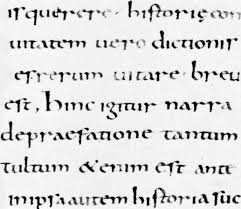 is querere· historię con
uitatem uero dictionis
es rerum uitare· breu
est, hinc igitur narra
depraefatione tantum
tultum &enim est ante
inipsa autem historia suc